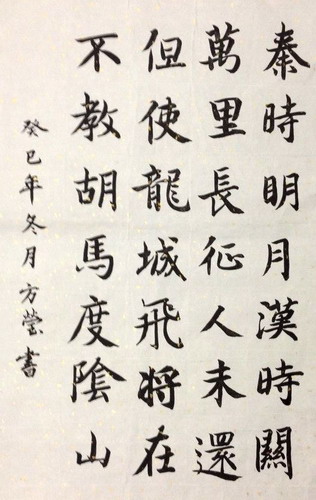 秦時明月漢時關
萬里長征人未還
但使龍城飛將在
不教胡馬度陰山
癸巳年冬月方瑩書